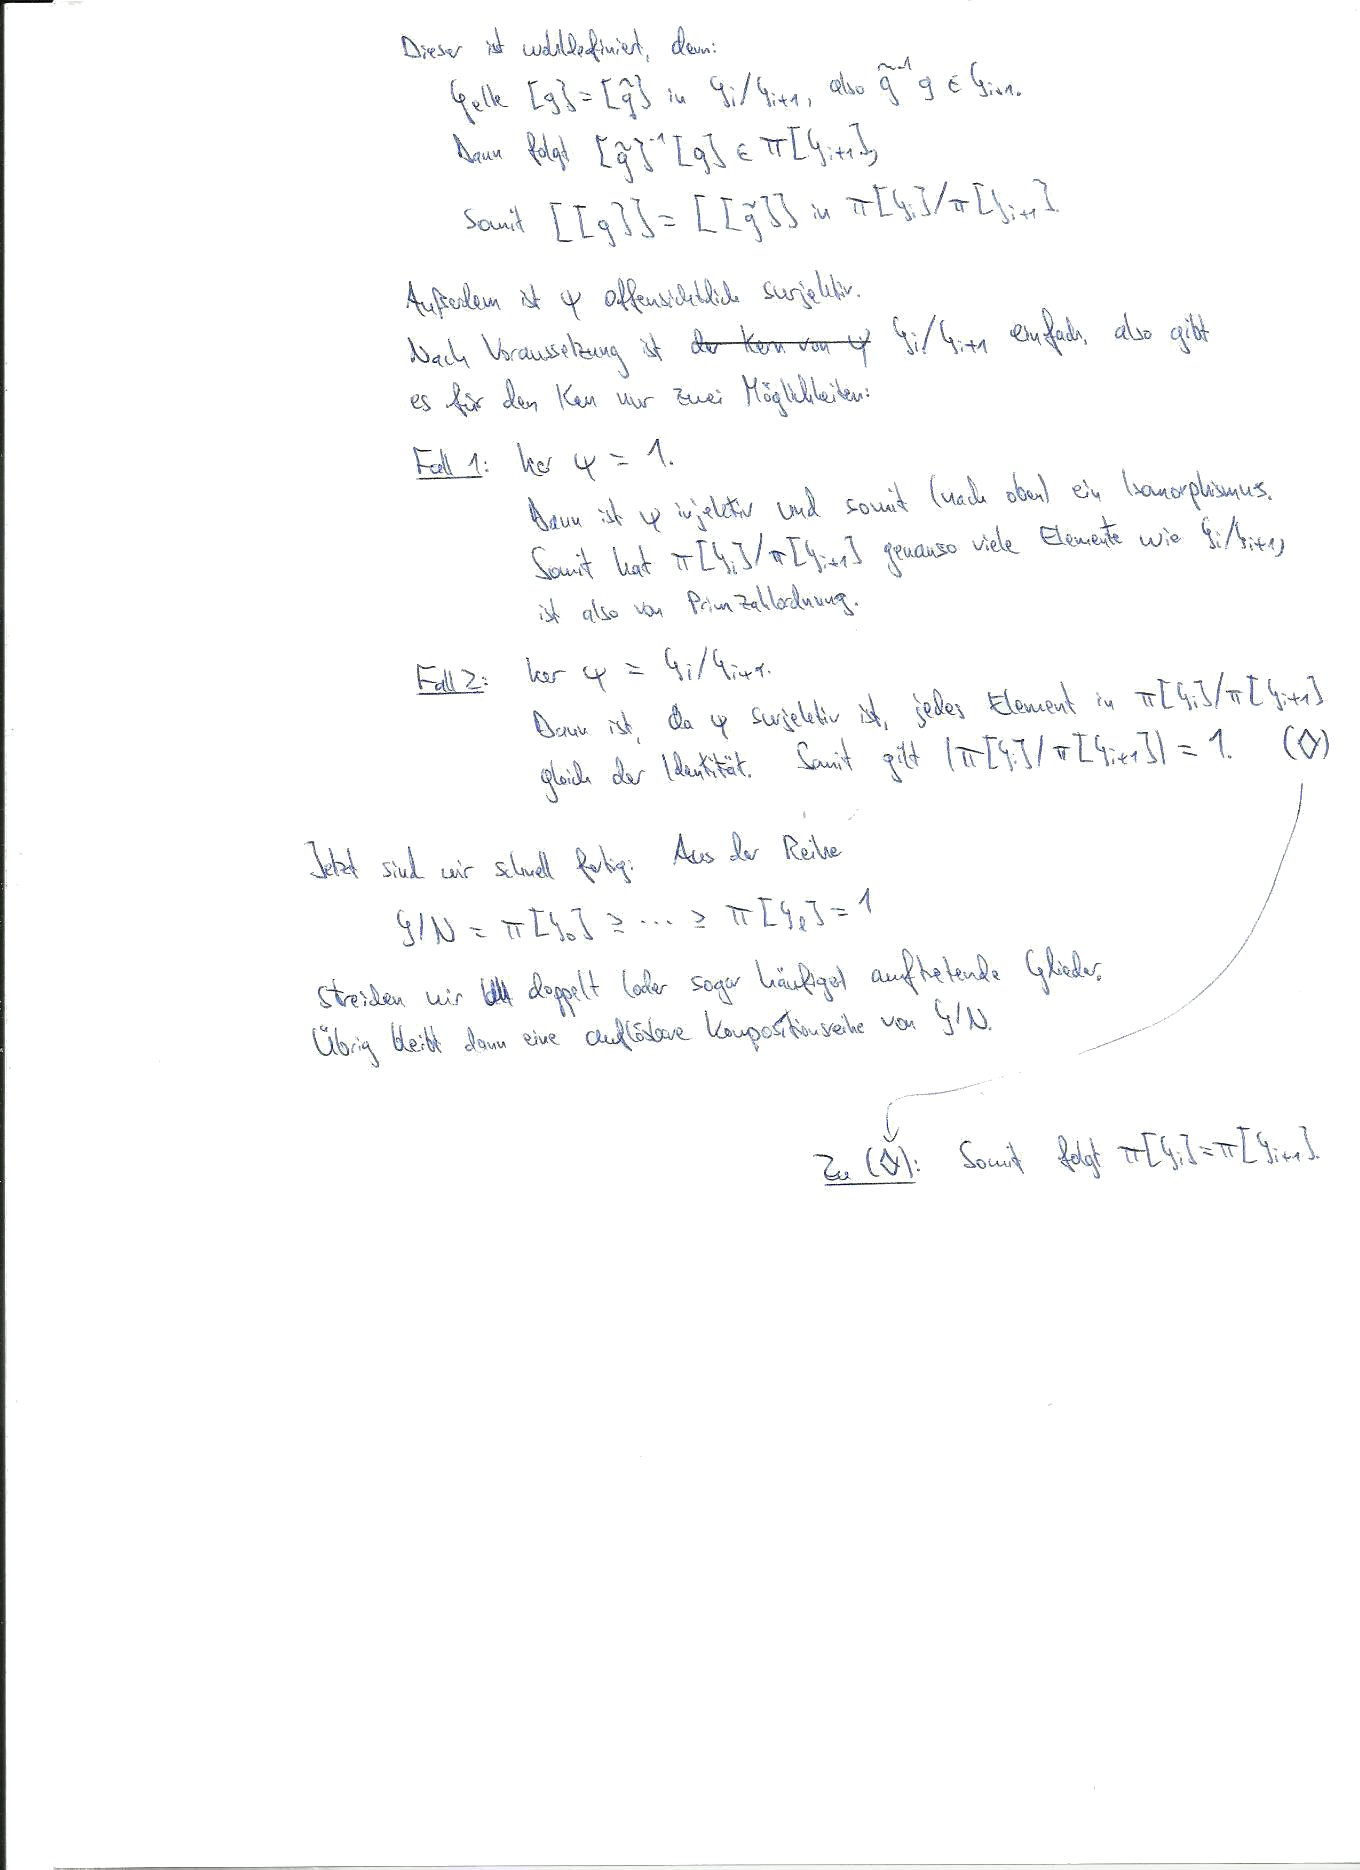 Dieser ist wohldefiniert, denn:
Gelte [g] = [g̃] in Gᵢ/Gᵢ₊₁, also g̃⁻¹ g ∈ Gᵢ₊₁.
Dann folgt [g̃]⁻¹ [g] ∈ π[Gᵢ₊₁],
Somit [[g]] = [[g̃]] in π[Gᵢ]/π[Gᵢ₊₁].
Außerdem ist ψ offensichtlich surjektiv.
Nach Voraussetzung ist der Kern von ψ Gᵢ/Gᵢ₊₁ einfach, also gibt
es für den Kern nur zwei Möglichkeiten:
Fall 1: ker ψ = 1.
Dann ist ψ injektiv und somit (nach oben) ein Isomorphismus.
Somit hat π[Gᵢ]/π[Gᵢ₊₁] genauso viele Elemente wie Gᵢ/Gᵢ₊₁,
ist also von Primzahlordnung.
Fall 2: ker ψ = Gᵢ/Gᵢ₊₁.
Dann ist, da ψ surjektiv ist, jedes Element in π[Gᵢ]/π[Gᵢ₊₁]
gleich der Identität. Somit gilt |π[Gᵢ]/π[Gᵢ₊₁]| = 1. (◊)
Jetzt sind wir schnell fertig: Aus der Reihe
G/N = π[G₀] ≥ ... ≥ π[Gₗ] = 1
streichen wir doppelt (oder sogar häufiger) auftretende Glieder.
Übrig bleibt dann eine auflösbare Kompositionsreihe von G/N.
Zu (◊): Somit folgt π[Gᵢ] = π[Gᵢ₊₁].